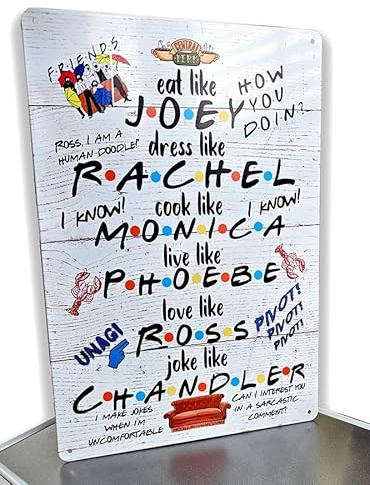 F·R·I·E·N·D·S
CENTRAL
PERK
eat like
HOW
YOU
DOIN?
J·O·E·Y
ROSS, I AM A
HUMAN DOODLE!"
dress like
R·A·C·H·E·L
I KNOW!
cook like
I KNOW!
M·O·N·I·C·A
live like
P·H·O·E·B·E
love like
UNAGI
R·O·S·S
PIVOT!
PIVOT!
PIVOT!
joke like
C·H·A·N·D·L·E·R
I MAKE JOKES
WHEN I'M
UNCOMFORTABLE
CAN I INTEREST YOU
IN A SARCASTIC
COMMENT?